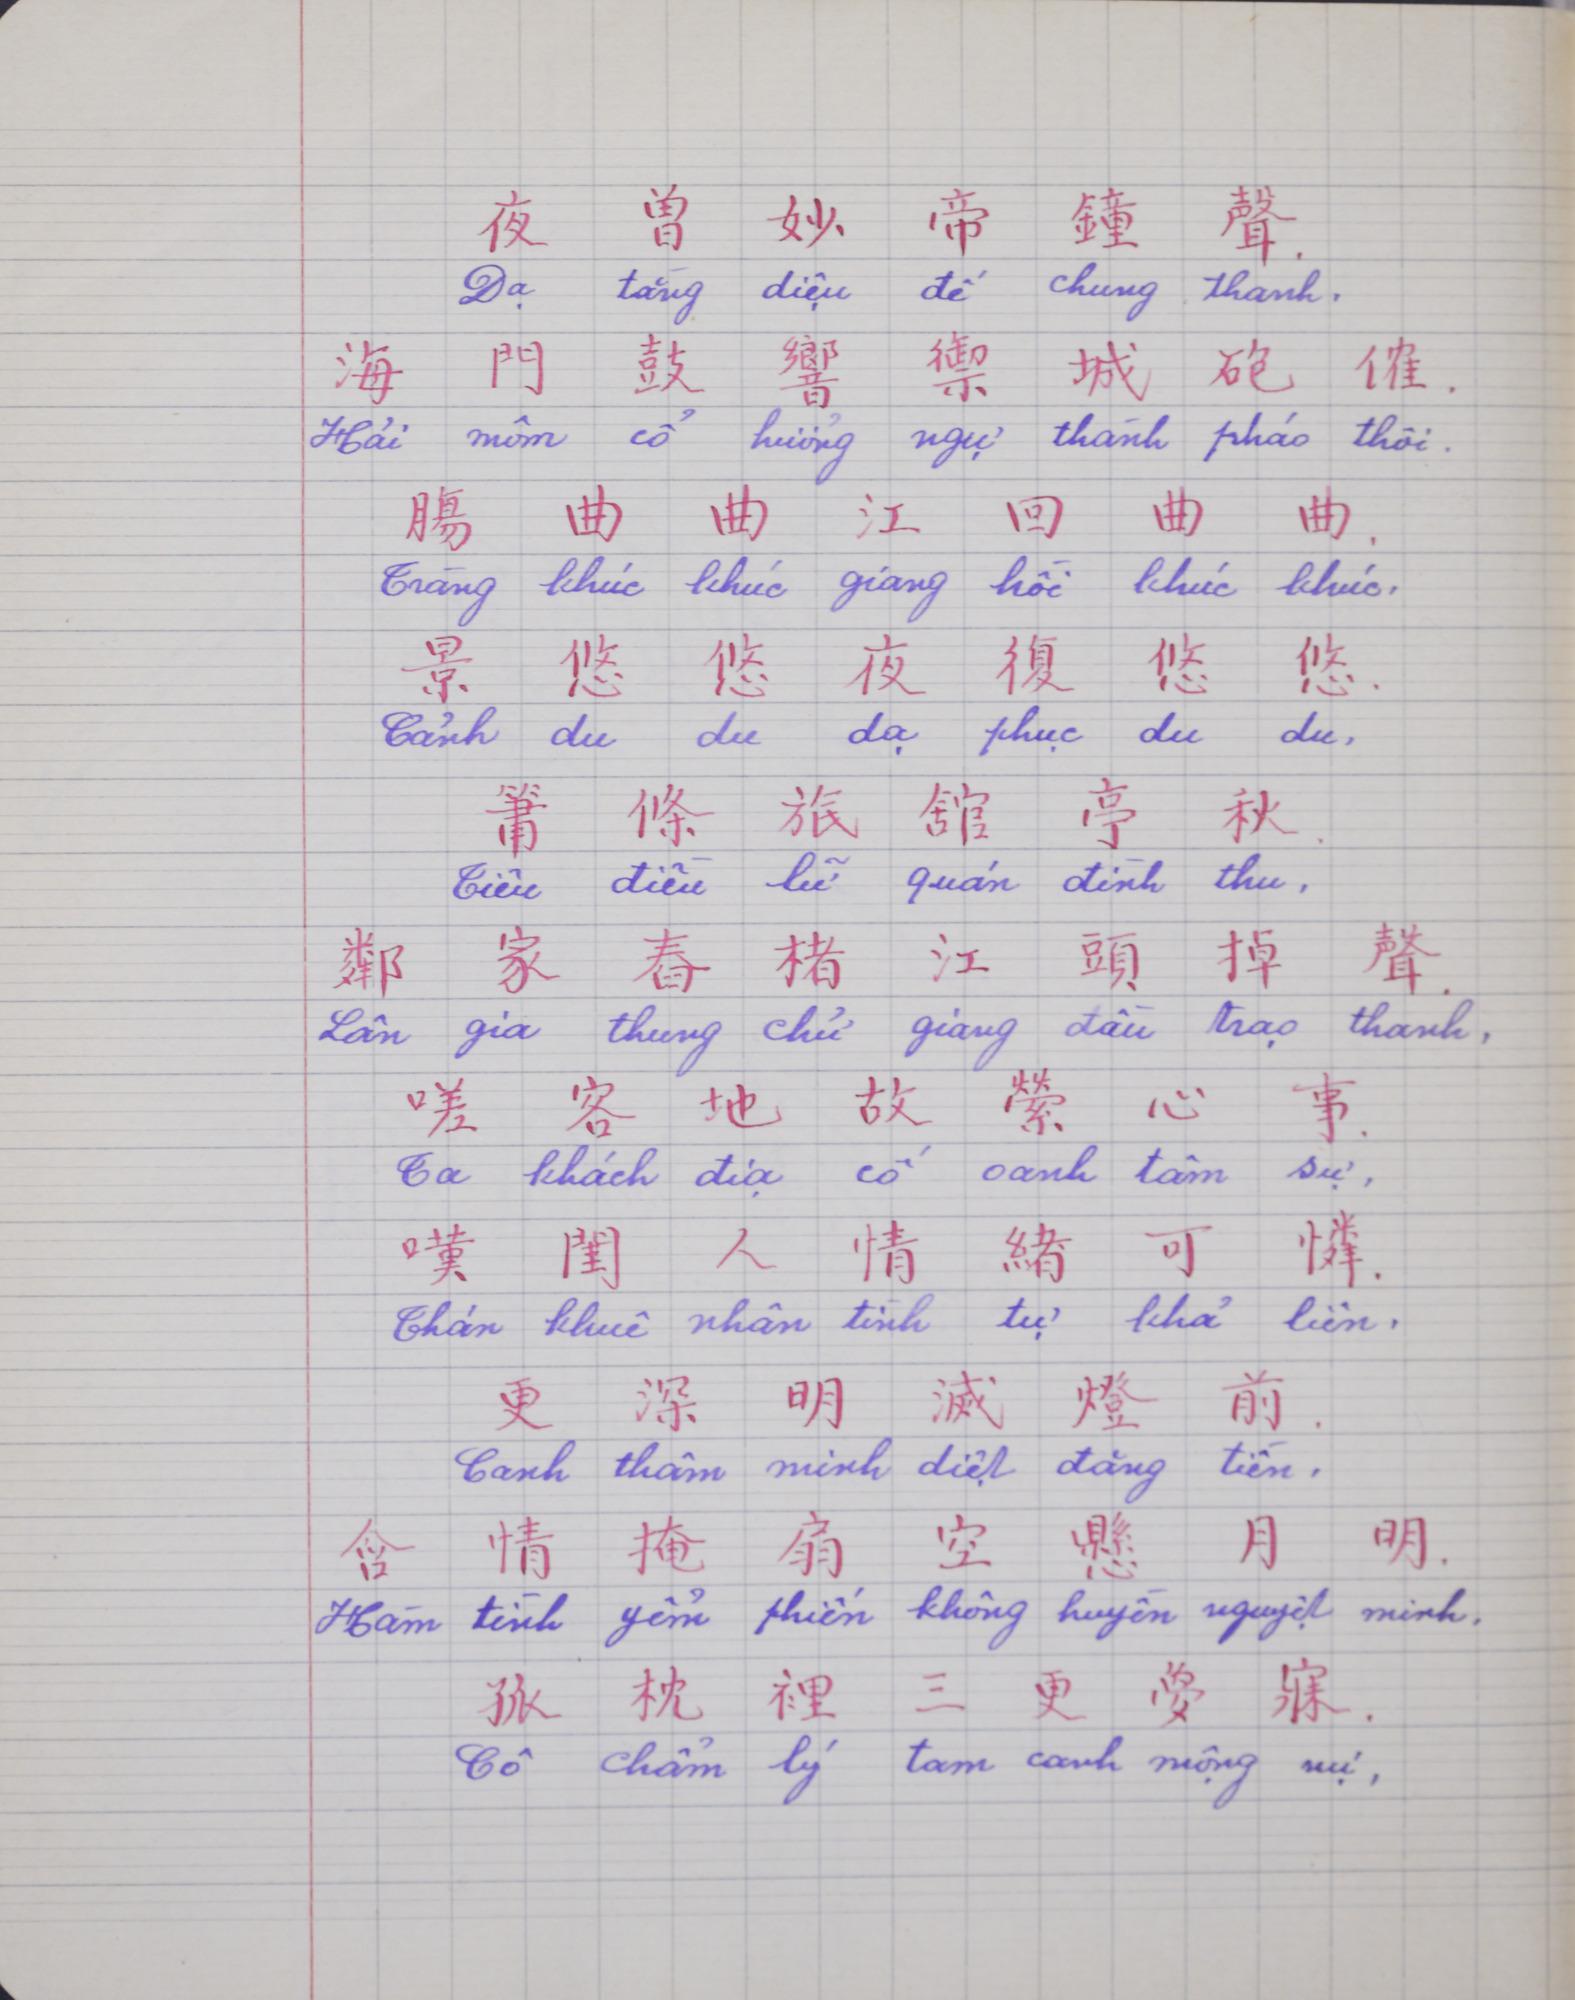 夜 曾 妙 帝 鐘 聲.
Dạ tằng diệu đế chung thanh.
海 門 鼓 響 禦 城 砲 催.
Hải môn cổ hưởng ngự thành pháo thôi.
腸 曲 曲 江 回 曲 曲.
Tràng khúc khúc giang hồi khúc khúc.
景 悠 悠 夜 復 悠 悠.
Cảnh du du dạ phục du du.
簫 條 旅 舘 亭 秋.
Tiêu điều lữ quán đình thu.
鄰 家 舂 楮 江 頭 掉 聲.
Lân gia thung chử giang đầu trạo thanh.
嗟 客 地 故 縈 心 事.
Ta khách địa cố oanh tâm sự.
嘆 閨 人 情 緒 可 憐.
Thán khuê nhân tình tự khả liên.
更 深 明 滅 燈 前.
Canh thâm minh diệt đăng tiền.
含 情 掩 扇 空 懸 月 明.
Hàm tình yểm phiến không huyền nguyệt minh.
孤 枕 裡 三 更 夢 寐.
Cô chẩm lý tam canh mộng mị.